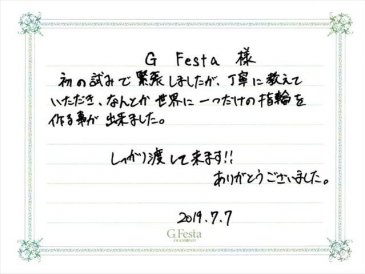 G Festa 様
初の試みで緊張しましたが、丁寧に教えて
いただき、なんとか世界に一つだけの指輪を
作る事が出来ました。
しっかり渡して来ます!!
ありがとうございました。
2019.7.7
G.Festa